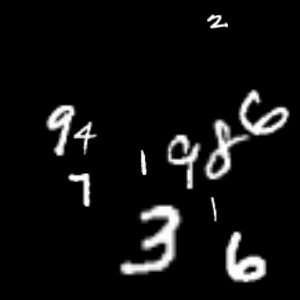 2
9 4 1 9 8 6
7 1
3 6